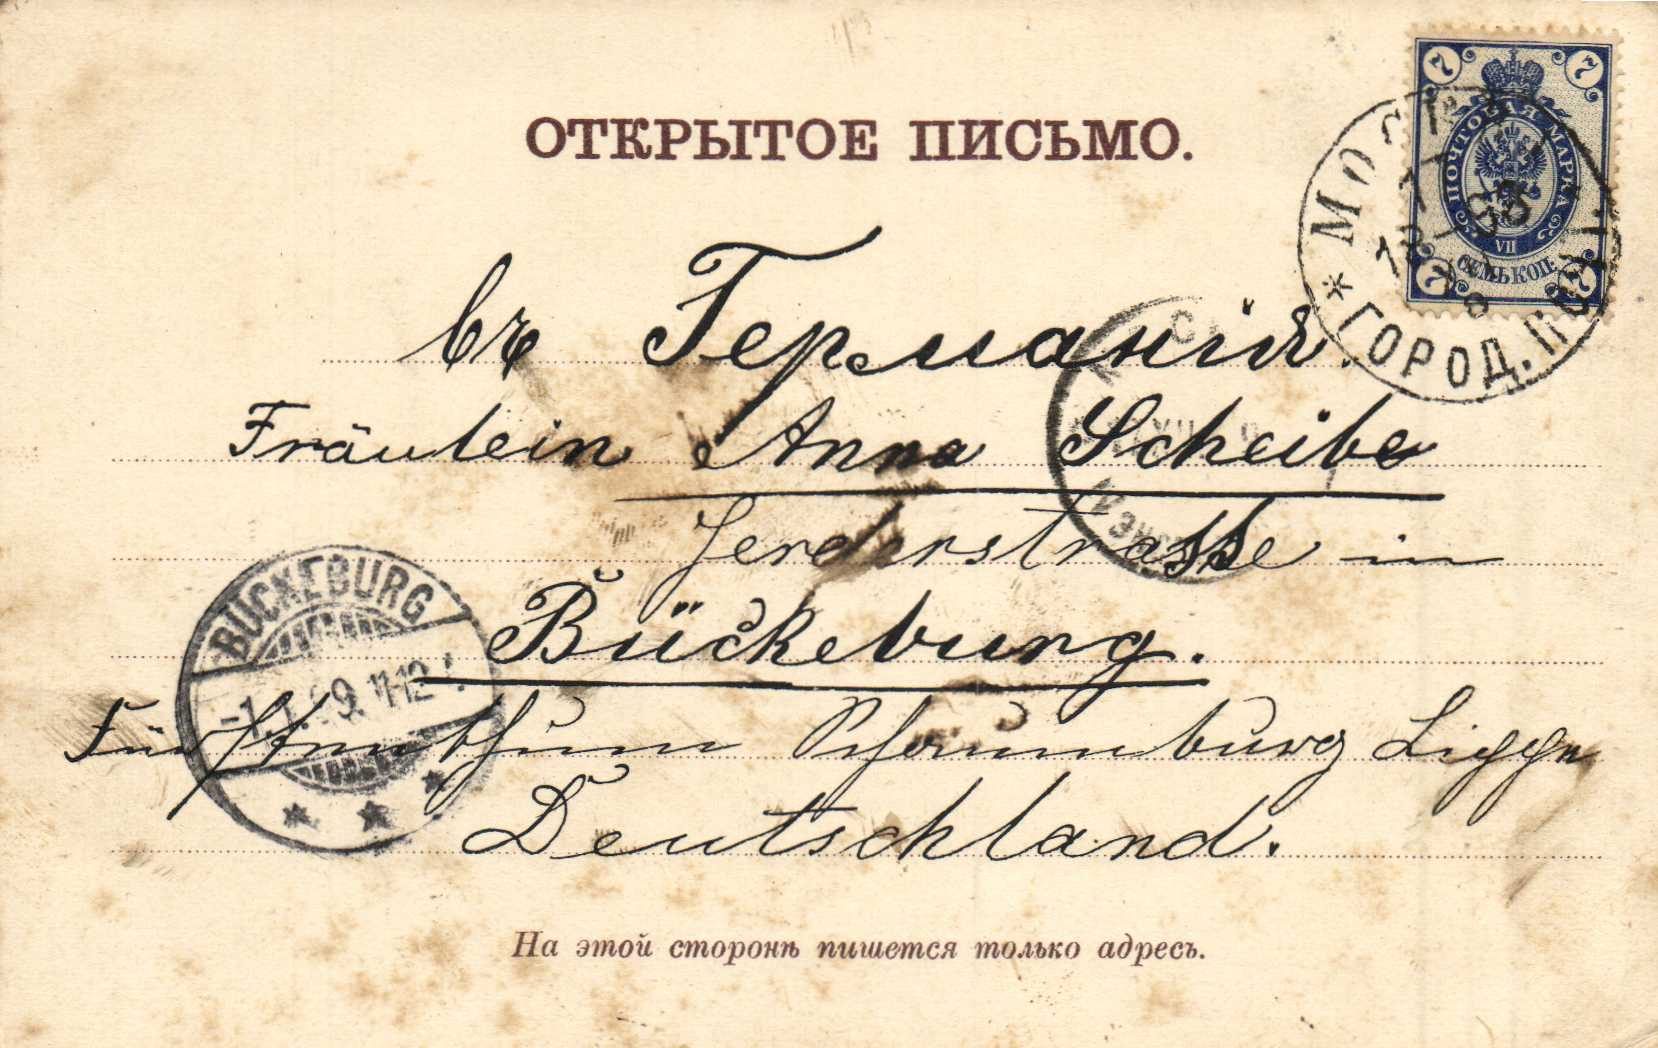 ОТКРЫТОЕ ПИСЬМО.
7 7
ПОЧТОВАЯ МАРКА
VII
СЕМЬ КОП.
7 7
ГОРОД. ПОЧТ
въ Германія.
Fräulein Anna Scheibe
Herderstrasse in
Bückeburg.
BÜCKEBURG
11-12
Fürstenthum Schaumburg Lippe
Deutschland.
На этой сторонѣ пишется только адресъ.